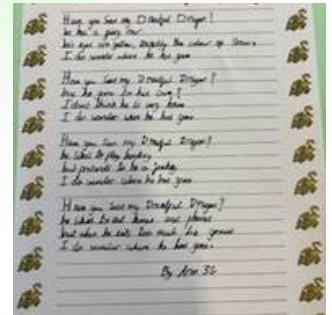 Have you seen my Dreadful Dragon?
he has a
his eyes are yellow, exactly the colour of
I do wonder where he has gone
Have you seen my Dreadful Dragon?
has he gone to his
I don't think he is very
I do wonder where he has gone
Have you seen my Dreadful Dragon?
he likes to play
but pretends to be a
I do wonder where he has gone
Have you seen my Dreadful Dragon?
he likes to eat and
but when he eats too much he
I do wonder where he has gone.
By 3G